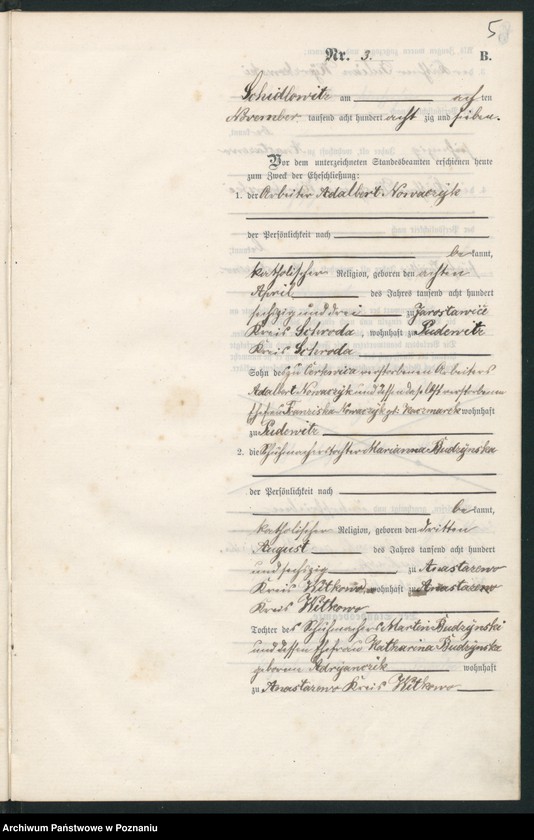 5
Nr. 3. B.
Schidlowitz am achten
November tausend acht hundert acht zig und sieben.
Vor dem unterzeichneten Standesbeamten erschienen heute
zum Zweck der Eheschließung:
1. der Arbeiter Adalbert Nowaczyk
der Persönlichkeit nach
bekannt,
katholischer Religion, geboren den achten
April des Jahres tausend acht hundert
sechzig und drei zu Jaroslawiec
Kreis Schroda, wohnhaft zu Pudewitz
Kreis Schroda
Sohn des zu verstorbenen Arbeiters
Adalbert Nowaczyk und dessen daselbst verstorbenen
Ehefrau Franziska Nowaczyk gb. Kaczmarek wohnhaft
zu Pudewitz
2. die Schuhmacherstochter Marianna Budzynska
der Persönlichkeit nach
bekannt,
katholischer Religion, geboren den dritten
August des Jahres tausend acht hundert
und sechzig zu Anastazewo
Kreis Witkowo, wohnhaft zu Anastazewo
Kreis Witkowo
Tochter des Schuhmachers Martin Budzynski
und dessen Ehefrau Katharina Budzynska
geborene wohnhaft
zu Anastazewo Kreis Witkowo
Archiwum Państwowe w Poznaniu